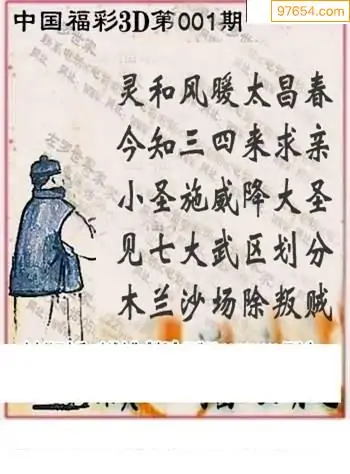 中国福彩3D第001期
97654.com
灵和风暖太昌春
今知三四来求亲
小圣施威降大圣
见七大武区划分
木兰沙场除叛贼